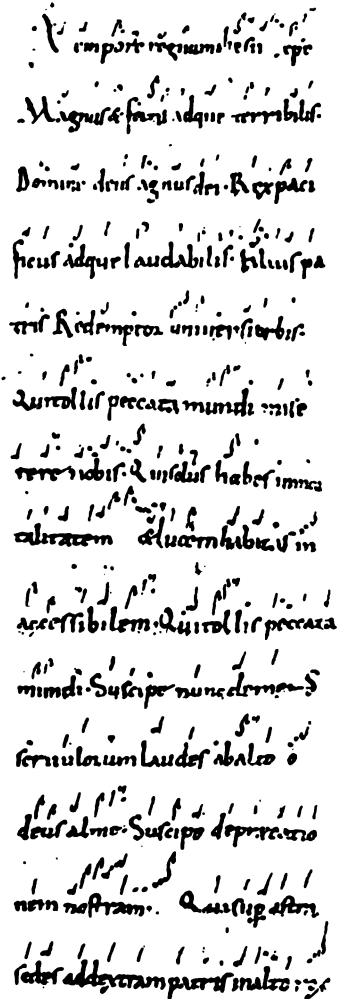 Magnus & fortis adque terribilis.
Domine deus agnus dei. Rex paci
ficus adque laudabilis. filius pa
tris Redemptor universi orbis.
Qui tollis peccata mundi mise
rere nobis. Qui solus habes inmor
talitatem &lucem habitas in
accessibilem. Qui tollis peccata
mundi. Suscipe nunc clemens
servulorum laudes ab alto o
deus alme. Suscipe deprecatio
nem nostram. Qui super astra
sedes ad dextram patris in alto